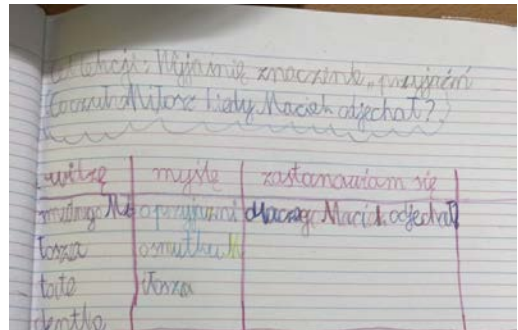 Cel lekcji: Wyjaśnię znaczenie „przyjaźń
Co czuł Miłosz kiedy Maciek odjechał?
widzę myślę zastanawiam się
smutnego Mi o przyjaźni dlaczego Maciek odjechał?
łosza o smutku M
tatę iłosza